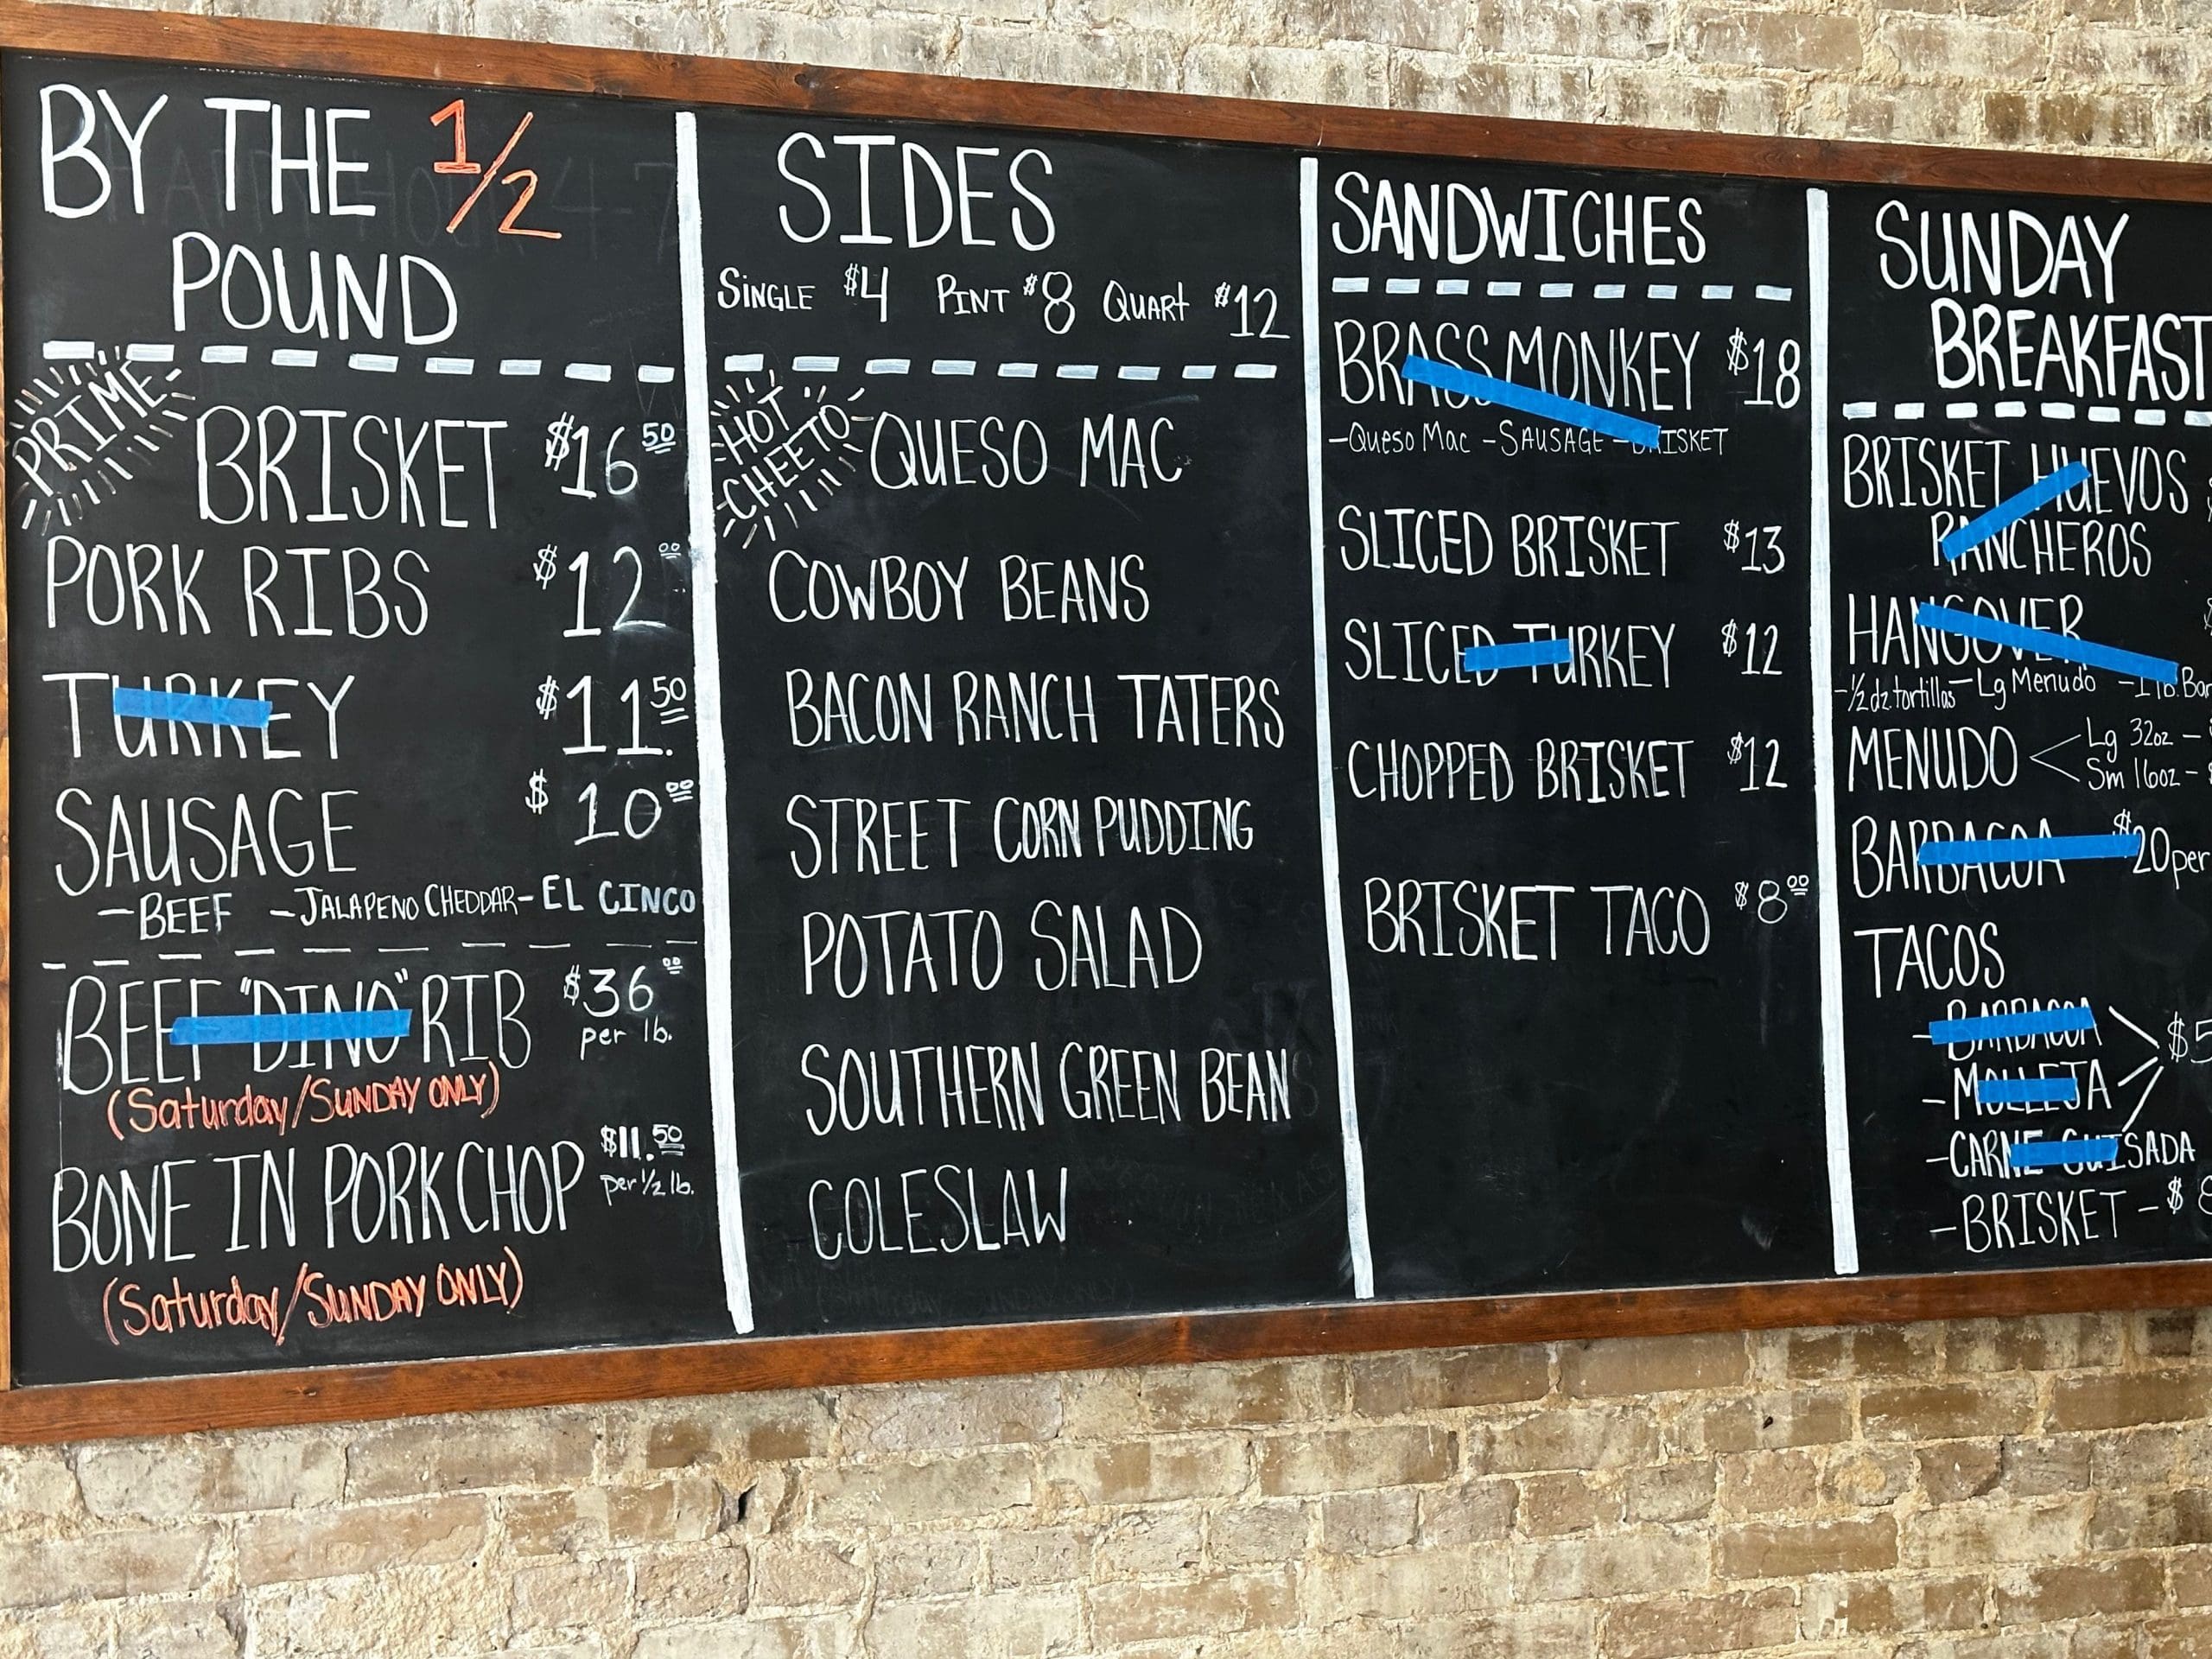 BY THE 1/2
POUND
PRIME
BRISKET $16 50
PORK RIBS $12 00
TURKEY $11.50
SAUSAGE $10 00
-BEEF -JALAPENO CHEDDAR -EL CINCO
BEEF "DINO" RIB $36 00
per lb.
(Saturday/SUNDAY ONLY)
BONE IN PORK CHOP $11.50
per 1/2 lb.
(Saturday/SUNDAY ONLY)
SIDES
SINGLE $4 PINT $8 QUART $12
HOT
CHEETO
QUESO MAC
COWBOY BEANS
BACON RANCH TATERS
STREET CORN PUDDING
POTATO SALAD
SOUTHERN GREEN BEAN
COLESLAW
SANDWICHES
BRASS MONKEY $18
-Queso Mac -SAUSAGE -BRISKET
SLICED BRISKET $13
SLICED TURKEY $12
CHOPPED BRISKET $12
BRISKET TACO $8 00
SUNDAY
BREAKFAST
BRISKET HUEVOS
RANCHEROS
HANGOVER
-1/2 dz. tortillas -Lg Menudo -1 lb. Bar
MENUDO
Lg 32oz -
Sm 16oz -
BARBACOA $20 per
TACOS
-BARBACOA
-MOLLEJA
$5
-CARNE GUISADA
-BRISKET - $8